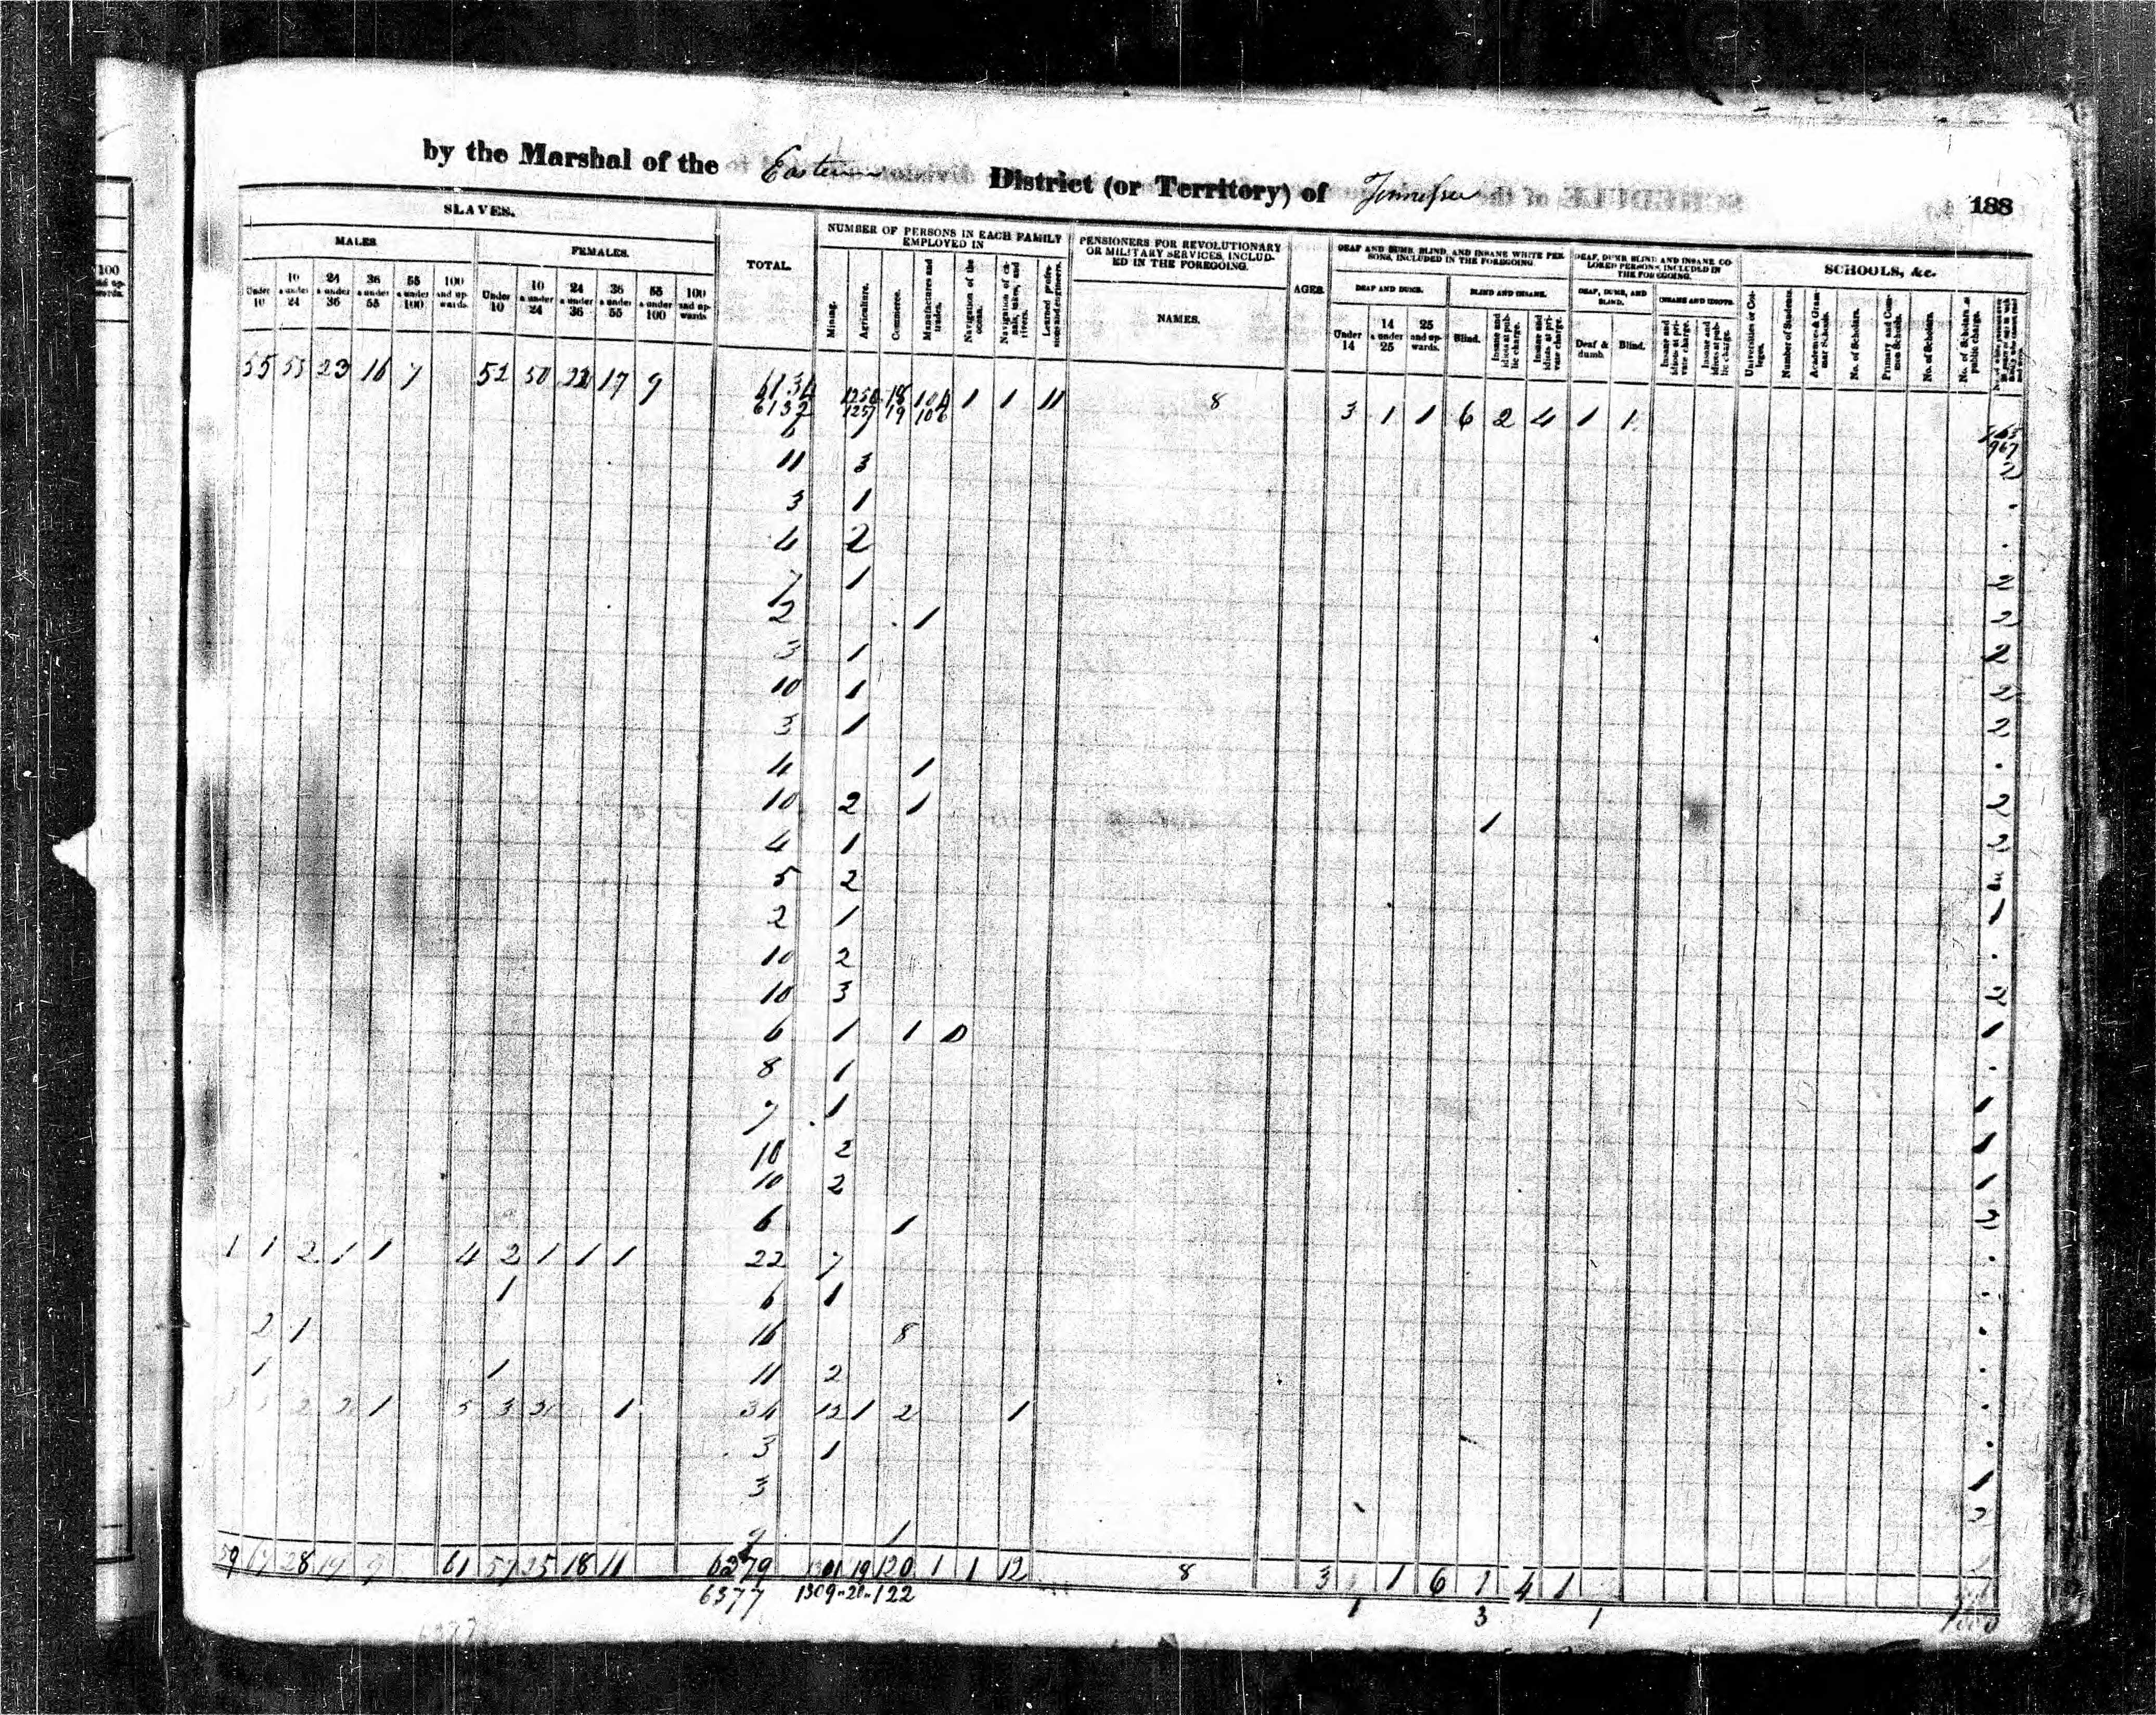 by the Marshal of the Eastern District (or Territory) of Tennessee 188
SLAVES.
MALES
FEMALES.
Under 10
10 & under 24
24 & under 36
36 & under 55
55 & under 100
100 and upwards.
Under 10
10 & under 24
24 & under 36
36 & under 55
55 & under 100
100 and upwards
TOTAL.
NUMBER OF PERSONS IN EACH FAMILY EMPLOYED IN
Mining.
Agriculture.
Commerce.
Manufactures and trades.
Navigation of the ocean.
Navigation of canals, lakes, and rivers.
Learned professions and engineers.
PENSIONERS FOR REVOLUTIONARY OR MILITARY SERVICES, INCLUDED IN THE FOREGOING.
NAMES.
AGES.
DEAF AND DUMB, BLIND, AND INSANE WHITE PERSONS, INCLUDED IN THE FOREGOING.
DEAF AND DUMB.
Under 14
14 & under 25
25 and upwards.
BLIND AND INSANE.
Blind.
Insane and idiots at public charge.
Insane and idiots at private charge.
DEAF, DUMB, BLIND AND INSANE COLORED PERSONS, INCLUDED IN THE FOREGOING.
DEAF, DUMB, AND BLIND.
Deaf & dumb.
Blind.
INSANE AND IDIOTS.
Insane and idiots at private charge.
Insane and idiots at public charge.
SCHOOLS, &c.
Universities or Colleges.
Number of Students.
Academies & Grammar Schools.
No. of Scholars.
Primary and Common Schools.
No. of Scholars.
No. of Scholars at public charge.
100 and upwards.
55 55 23 16 7 52 50 22 17 9 6134 1256 18 104 1 1 11 8 3 1 1 6 2 4 1 1
6132 1257 19 106 967
6 1 2
11 3
3 1
4 2
7 1 2
2 1 2
3 1 2
10 1 2
3 1 2
4 1
10 2 1 1 2
4 1 2
5 2
2 1 1
10 2
10 3 2
6 1 1 0 1
8 1
7 1 1
10 2 1
10 2 1
6 1
1 1 2 1 1 4 2 1 1 1 22 7
1 6 1
2 1 16 8
1 1 11 2
2 2 1 5 3 2 1 34 12 1 2 1
3 1
3 1
1
59 28 19 9 61 57 25 18 11 6279 1301 19 120 1 1 12 8 3 1 6 1 4 1
6377 1309 - 20 - 122 1 3 1